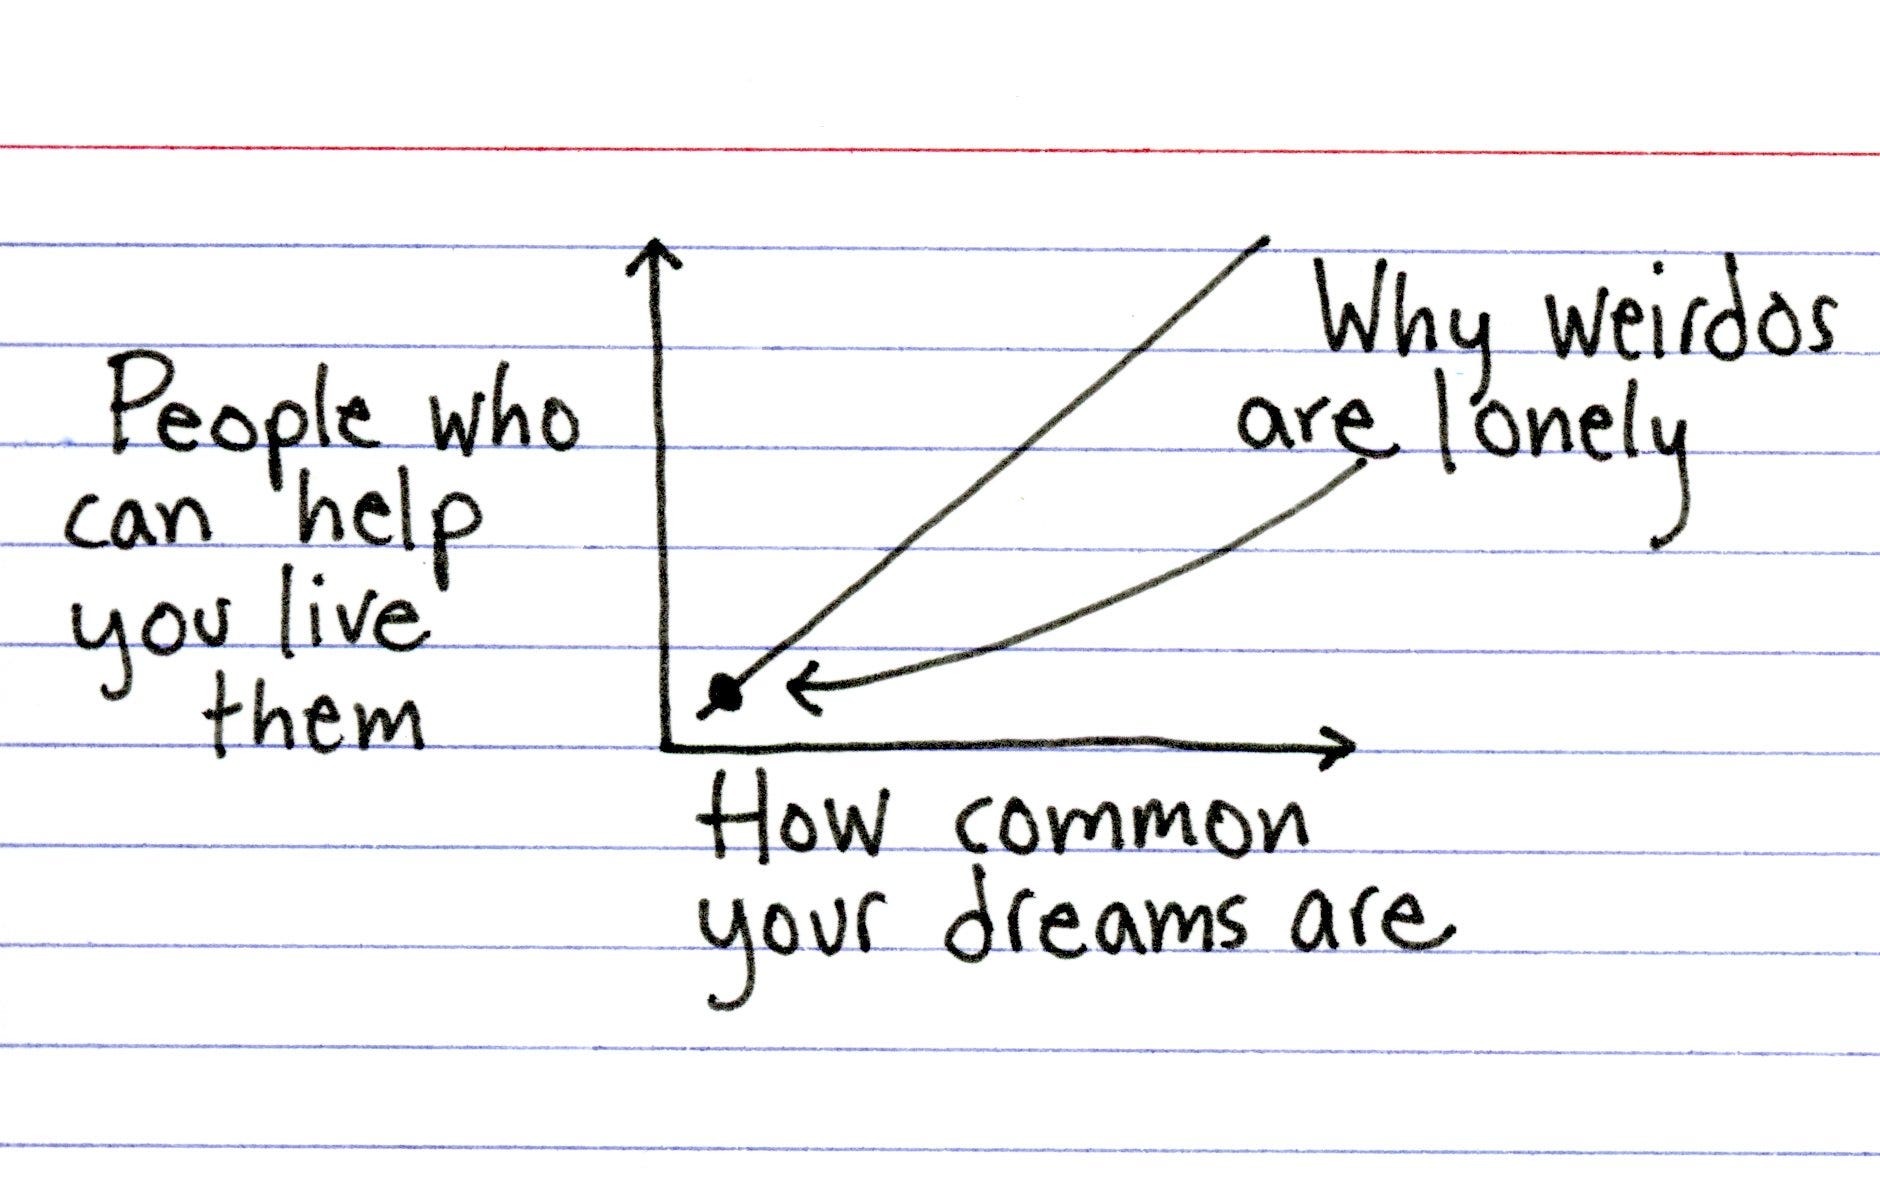 People who
can help
you live
them
Why weirdos
are lonely
How common
your dreams are